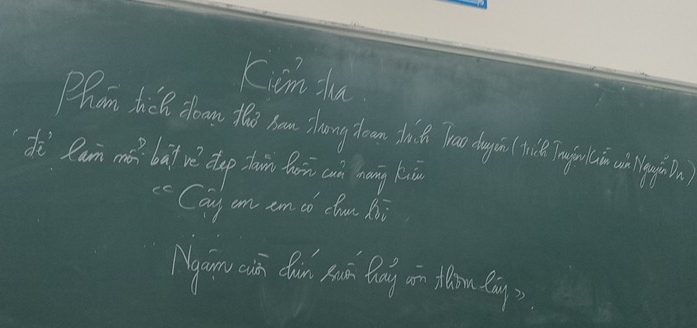 Kiểm tra
Phân tích đoạn thơ sau trong đoạn trích Trao duyên (trích Truyện Kiều của Nguyễn Du)
để làm nổi bật vẻ đẹp tâm hồn của nàng Kiều
"Cậy em em có chịu lời
Ngậm cười chín suối hãy còn thơm lây".